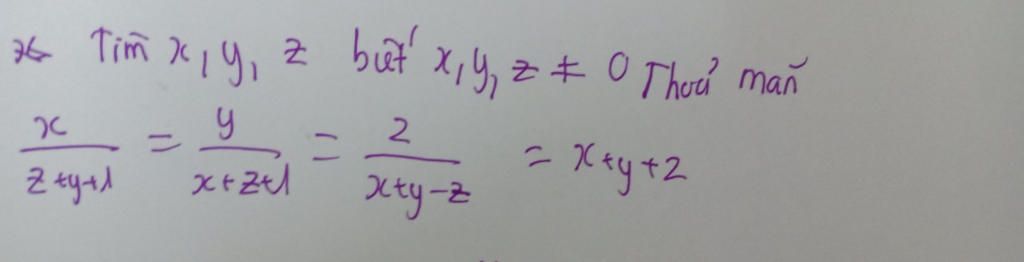 * Tìm x, y, z biết x, y, z ≠ 0 Thoả mãn
x/(z+y+1) = y/(x+z+1) = 2/(x+y-z) = x+y+2